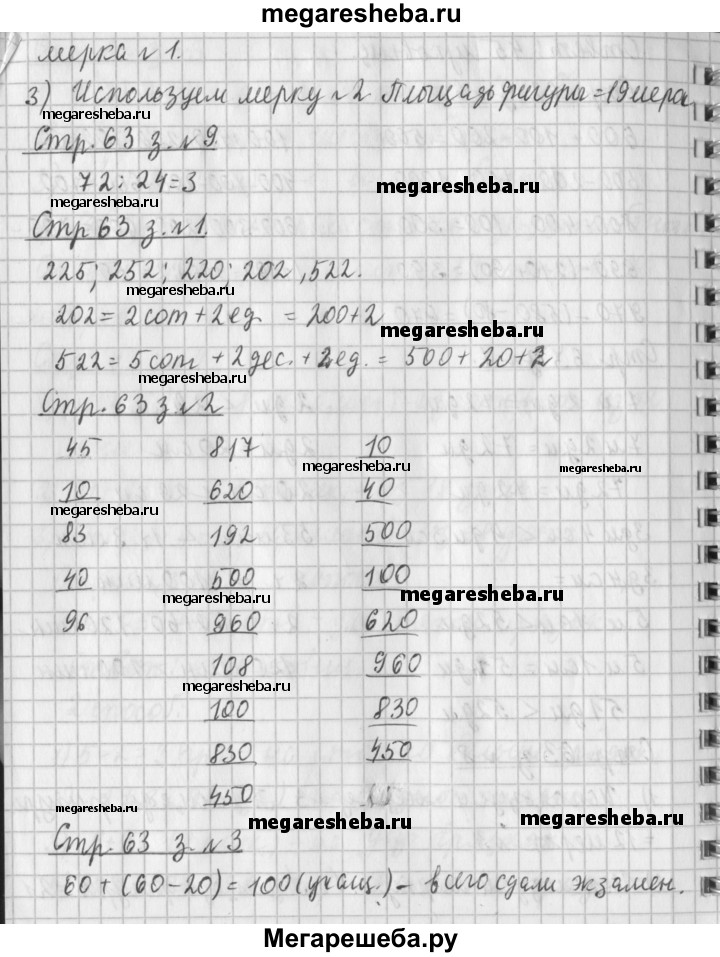 megaresheba.ru
мерка №1.
3) Используем мерку №2 Площадь фигуры = 19 мерок
megaresheba.ru
Стр. 63 з. №9.
72 : 24 = 3
megaresheba.ru
megaresheba.ru
Стр 63 з. №1.
225; 252; 220; 202, 522.
megaresheba.ru
202 = 2 сот + 2 ед. = 200 + 2
megaresheba.ru
522 = 5 сот + 2 дес. + 2 ед. = 500 + 20 + 2
megaresheba.ru
Стр. 63 з №2
45 817 10
megaresheba.ru megaresheba.ru
10 620 40
megaresheba.ru
83 192 500
40 500 100
megaresheba.ru megaresheba.ru
96 960 620
108 960
megaresheba.ru
100 830
830 450
450
megaresheba.ru megaresheba.ru megaresheba.ru
Стр. 63 з. №3
60 + (60 - 20) = 100 (учащ.) - всего сдали экзамен.
Мегарешеба.ру